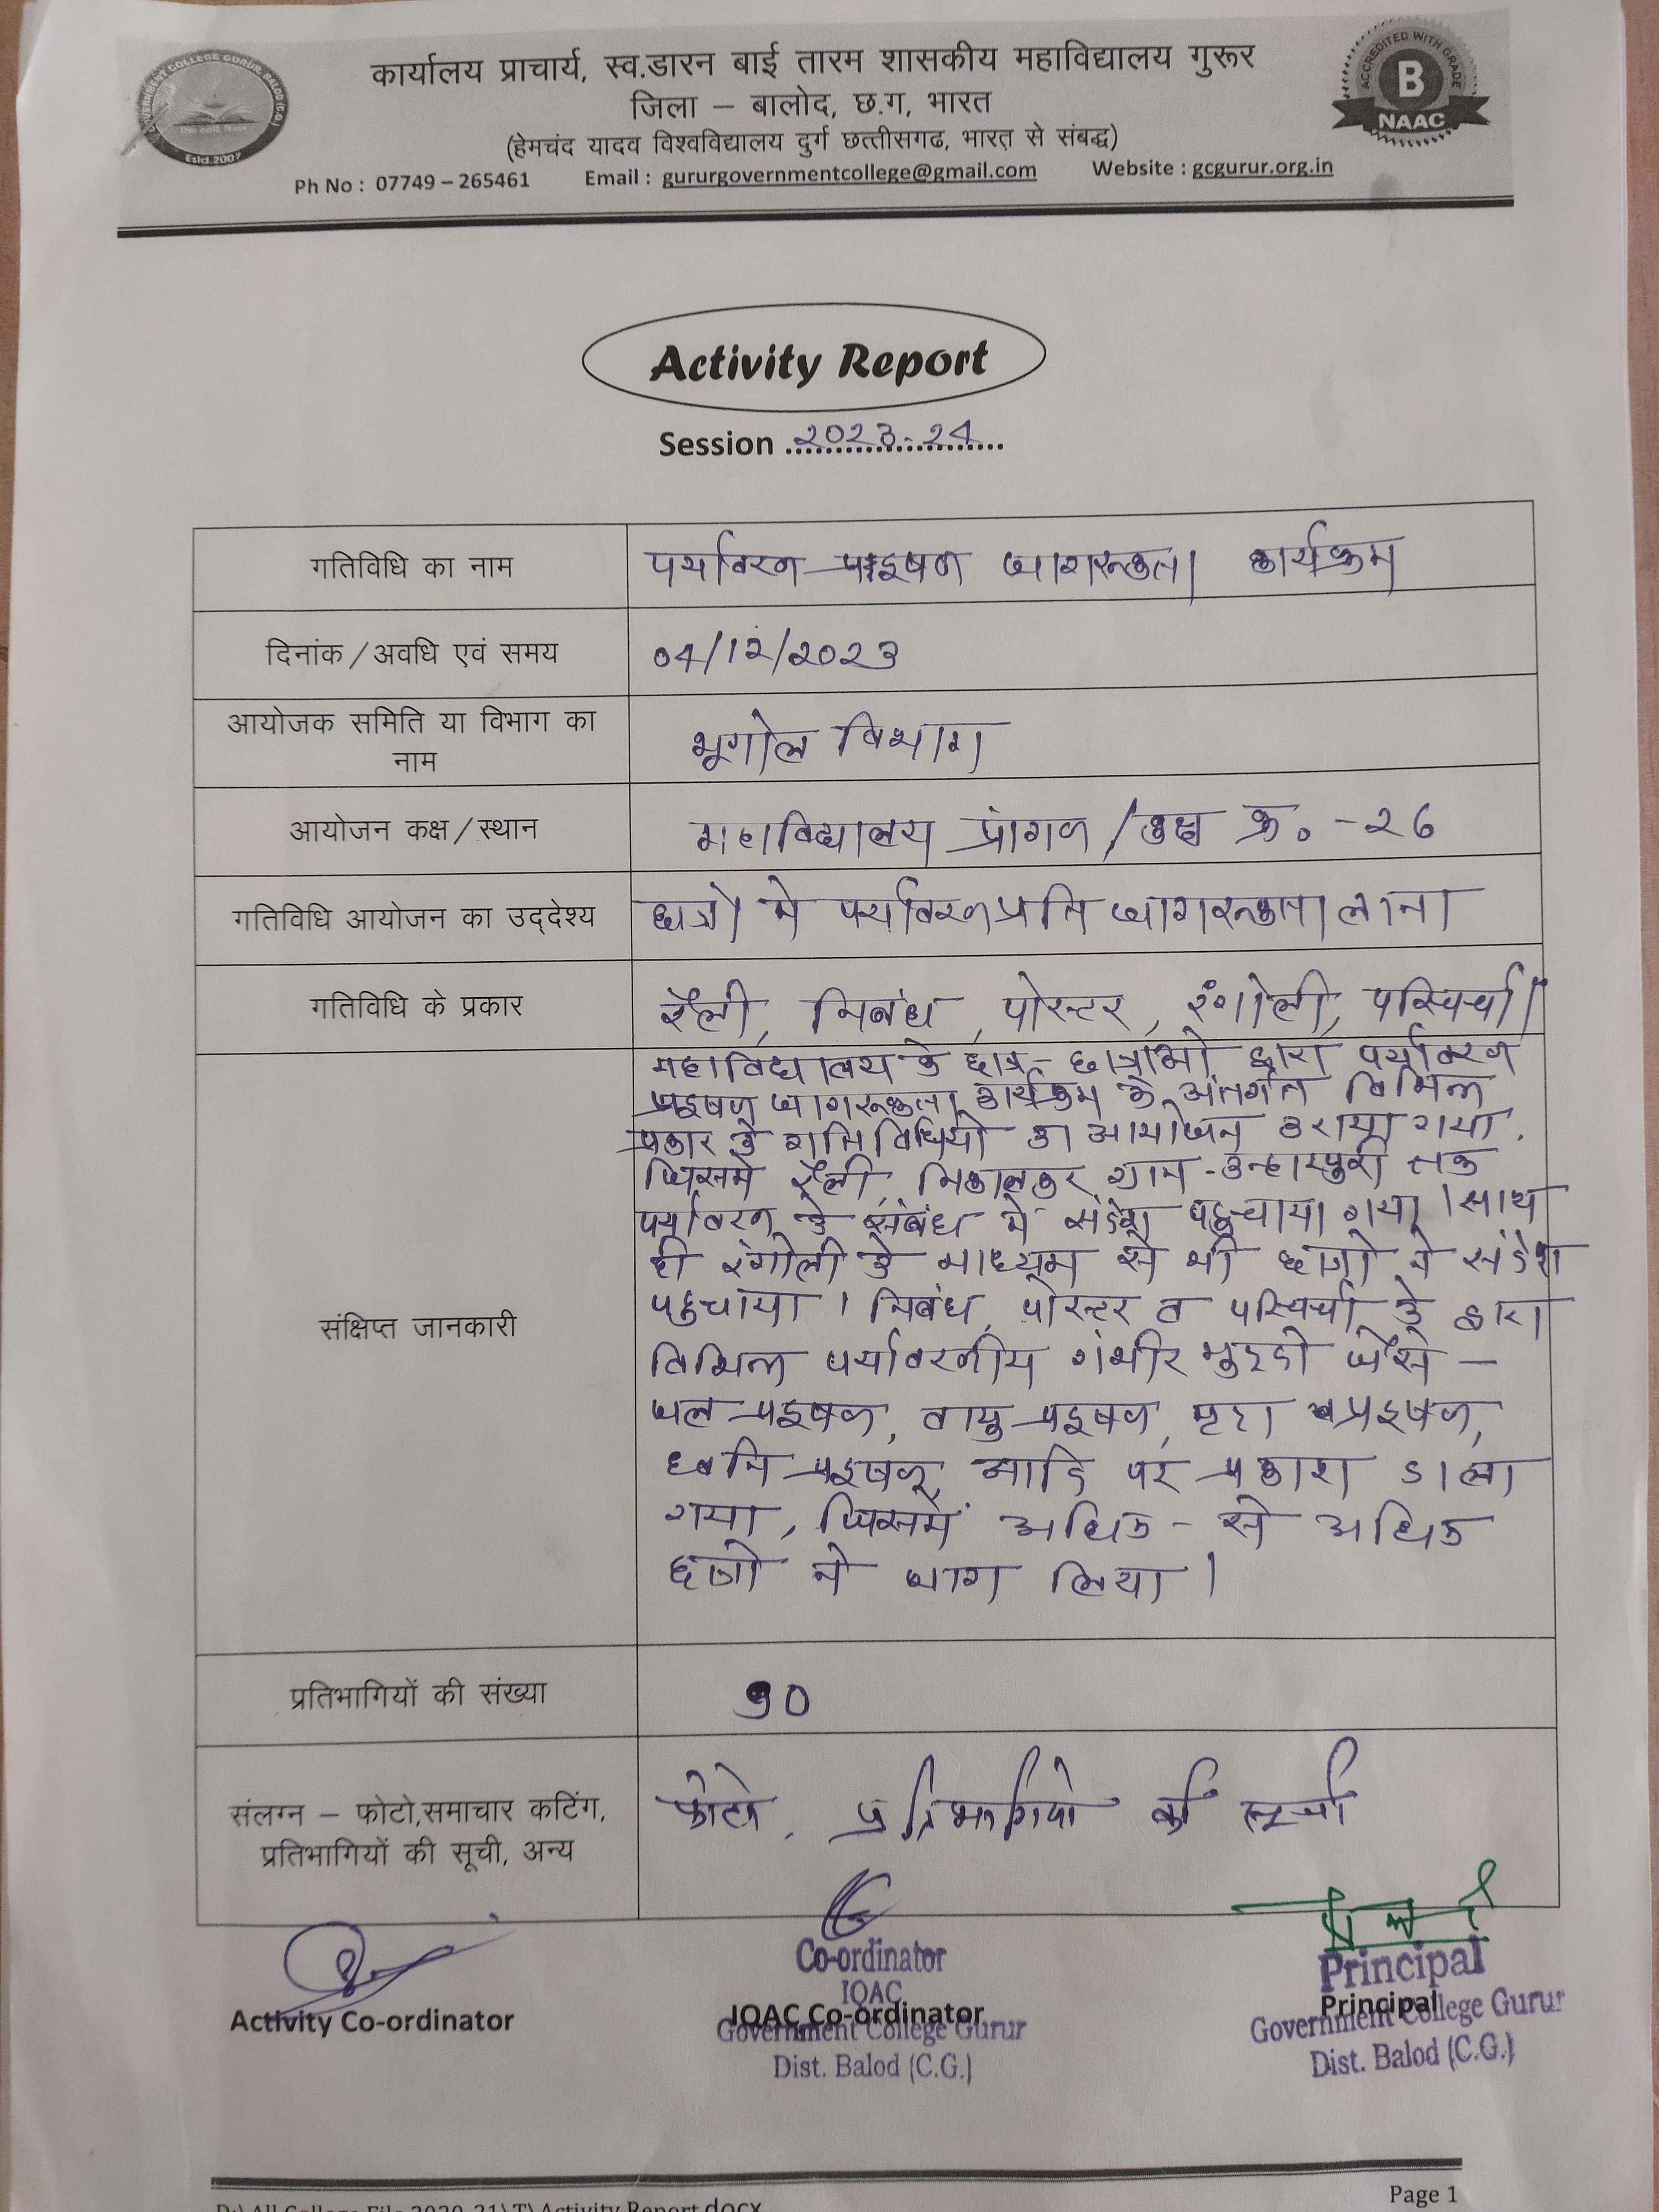 GOVERNMENT COLLEGE GURUR, BALOD (C.G.)
Estd.2007
ACCREDITED WITH GRADE
B
NAAC
कार्यालय प्राचार्य, स्व.डारन बाई तारम शासकीय महाविद्यालय गुरूर
जिला – बालोद, छ.ग, भारत
(हेमचंद यादव विश्वविद्यालय दुर्ग छत्तीसगढ, भारत से संबद्ध)
Ph No : 07749 – 265461 Email : gururgovernmentcollege@gmail.com Website : gcgurur.org.in
Activity Report
Session 2023-24
गतिविधि का नाम पर्यावरण प्रदुषण जागरूकता कार्यक्रम
दिनांक/अवधि एवं समय 04/12/2023
आयोजक समिति या विभाग का
नाम
भूगोल विभाग
आयोजन कक्ष/स्थान महाविद्यालय प्रांगण / कक्ष क्र० -26
गतिविधि आयोजन का उद्देश्य छात्रो मे पर्यावरण प्रति जागरूकता लाना
गतिविधि के प्रकार रैली, निबंध, पोस्टर, रंगोली, परिचर्चा।
संक्षिप्त जानकारी
महाविद्यालय के छात्र-छात्राओ द्वारा पर्यावरण
प्रदुषण जागरूकता कार्यक्रम के अंतर्गत विभिन्न
प्रकार के गतिविधियो का आयोजन कराया गया.
जिसमे रैली, निकालकर ग्राम-कन्हारपुरी तक
पर्यावरण के संबंध मे संदेश पहुचाया गया। साथ
ही रंगोली के माध्यम से भी छात्रो ने संदेश
पहुचाया। निबंध, पोस्टर व परिचर्चा के द्वारा
विभिन्न पर्यावरणीय गंभीर मुद्दो जैसे –
जल प्रदुषण, वायु प्रदुषण, मृदा प्रदुषण,
ध्वनि प्रदुषण आदि पर प्रकाश डाला
गया, जिसमें अधिक - से अधिक
छात्रो ने भाग लिया।
प्रतिभागियों की संख्या 90
संलग्न – फोटो,समाचार कटिंग,
प्रतिभागियों की सूची, अन्य
फोटो, प्रतिभागियो की सूची
Activity Co-ordinator
Co-ordinator
IQAC
IQAC Co-ordinator
Government College Gurur
Dist. Balod (C.G.)
Principal
Principal
Government College Gurur
Dist. Balod (C.G.)
Page 1
D:\ All College File 2020-21\ T\ Activity Report.docx